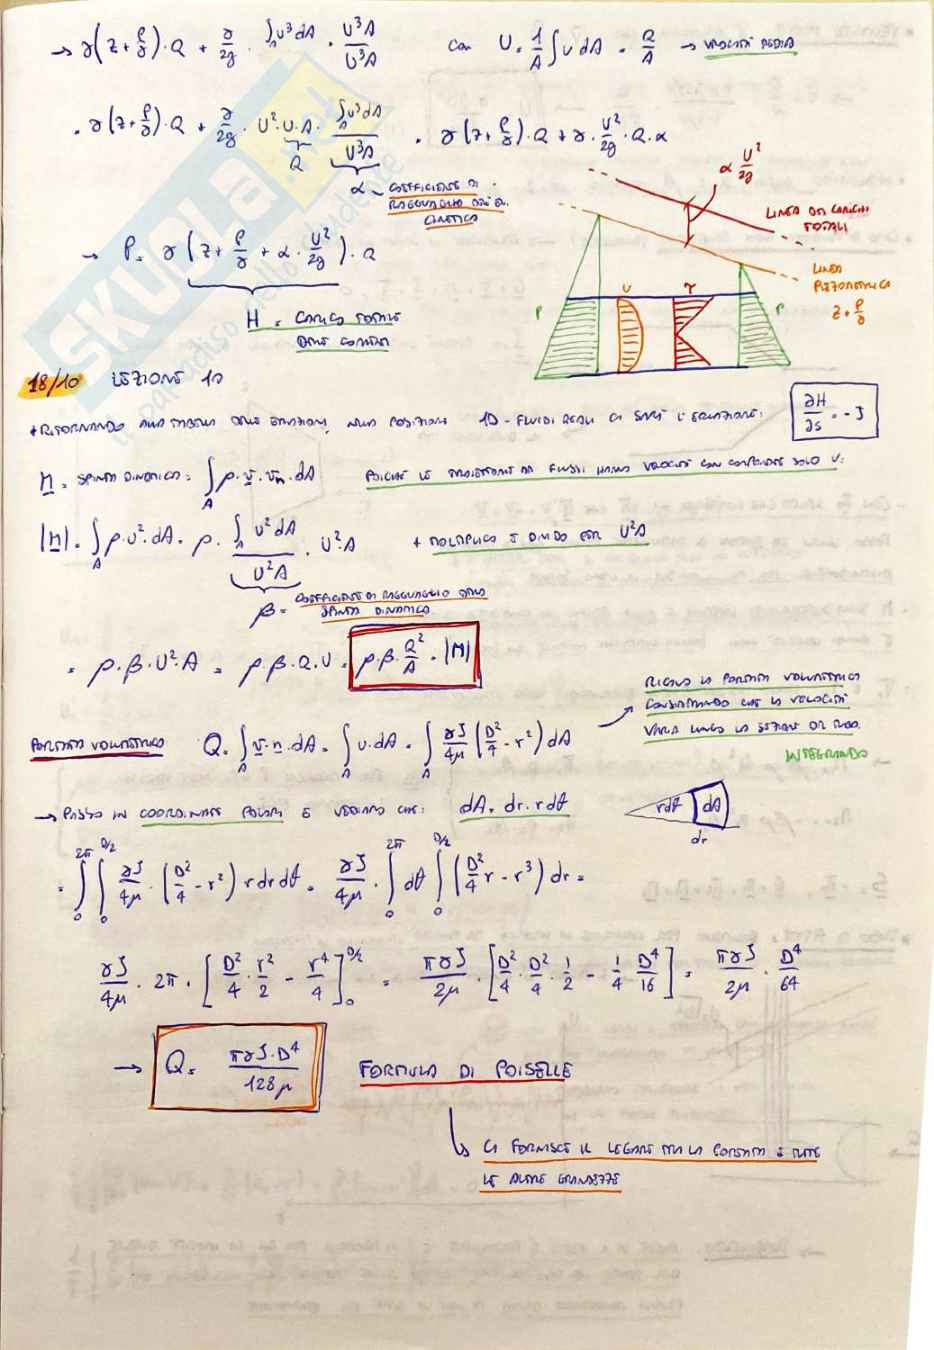 → γ(z+p/γ)·Q + γ/2g · ∫_A v³dA · U³A/U³A con U = 1/A ∫ v dA = Q/A → VELOCITÀ MEDIA
= γ(z+p/γ)·Q + γ/2g · U²·U·A · ∫_A v³dA/U³A = γ(z+p/γ)·Q + γ·U²/2g·Q·α
Q
α → COEFFICIENTE DI
RAGGUAGLIO DELL'EN.
CINETICA
→ P = γ(z+p/γ+α·U²/2g)·Q
H = CARICO TOTALE
DELLA CORRENTE
α U²/2g
LINEA DEI CARICHI
TOTALI
LINEA
PIEZOMETRICA
z+p/γ
P U τ P
18/10 LEZIONE 10
RITORNANDO ALLA TABELLA DELLE EQUAZIONI, NELLA POSIZIONE 1D-FLUIDI REALI CI SARÀ L'EQUAZIONE: ∂H/∂s = -J
M = SPINTA DINAMICA = ∫_A ρ·v·vₙ·dA POICHÉ LE TRAIETTORIE DEI FLUSSI HANNO VELOCITÀ CON COMPONENTE SOLO U:
|M| = ∫_A ρ·v²·dA = ρ · ∫_A v²dA/U²A · U²·A → MOLTIPLICO E DIVIDO PER U²A
β = COEFFICIENTE DI RAGGUAGLIO DELLA
SPINTA DINAMICA
= ρ·β·U²·A = ρ·β·Q·U = ρ·β·Q²/A = |M|
RICAVO LA PORTATA VOLUMETRICA
CONSIDERANDO CHE LA VELOCITÀ
VARIA LUNGO LA SEZIONE DEL TUBO.
INTEGRANDO
PORTATA VOLUMETRICA Q = ∫_A v·n·dA = ∫_A v·dA = ∫_A γJ/4μ (D²/4 - r²) dA
→ PASSO IN COORDINATE POLARI E VEDIAMO CHE: dA = dr·rdθ
rdθ dA
dr
= ∫₀^2π ∫₀^D/2 γJ/4μ · (D²/4 - r²) r dr dθ = γJ/4μ · ∫₀^2π dθ ∫₀^D/2 (D²/4 r - r³) dr =
γJ/4μ · 2π · [D²/4 · r²/2 - r⁴/4]₀^D/2 = πγJ/2μ · [D²/4 · D²/4 · 1/2 - 1/4 · D⁴/16] = πγJ/2μ · D⁴/64
→ Q = πγJ·D⁴/128μ FORMULA DI POISELLE
↳ CI FORNISCE IL LEGAME TRA LA PORTATA E TUTTE
LE ALTRE GRANDEZZE
SKUOLA.net
il paradiso dello studente